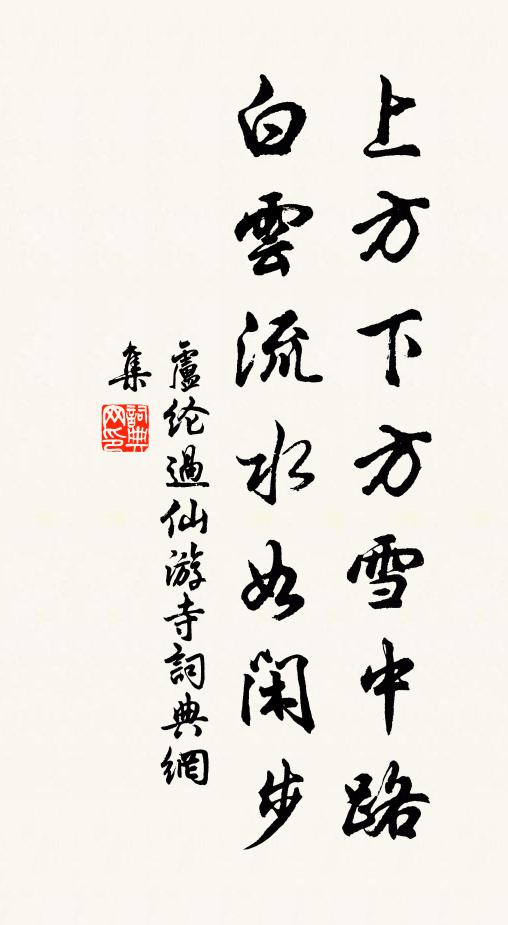 上方下方雪中路
白雲流水如閑步
盧纶過仙游寺詞典網
集
詞典
网印